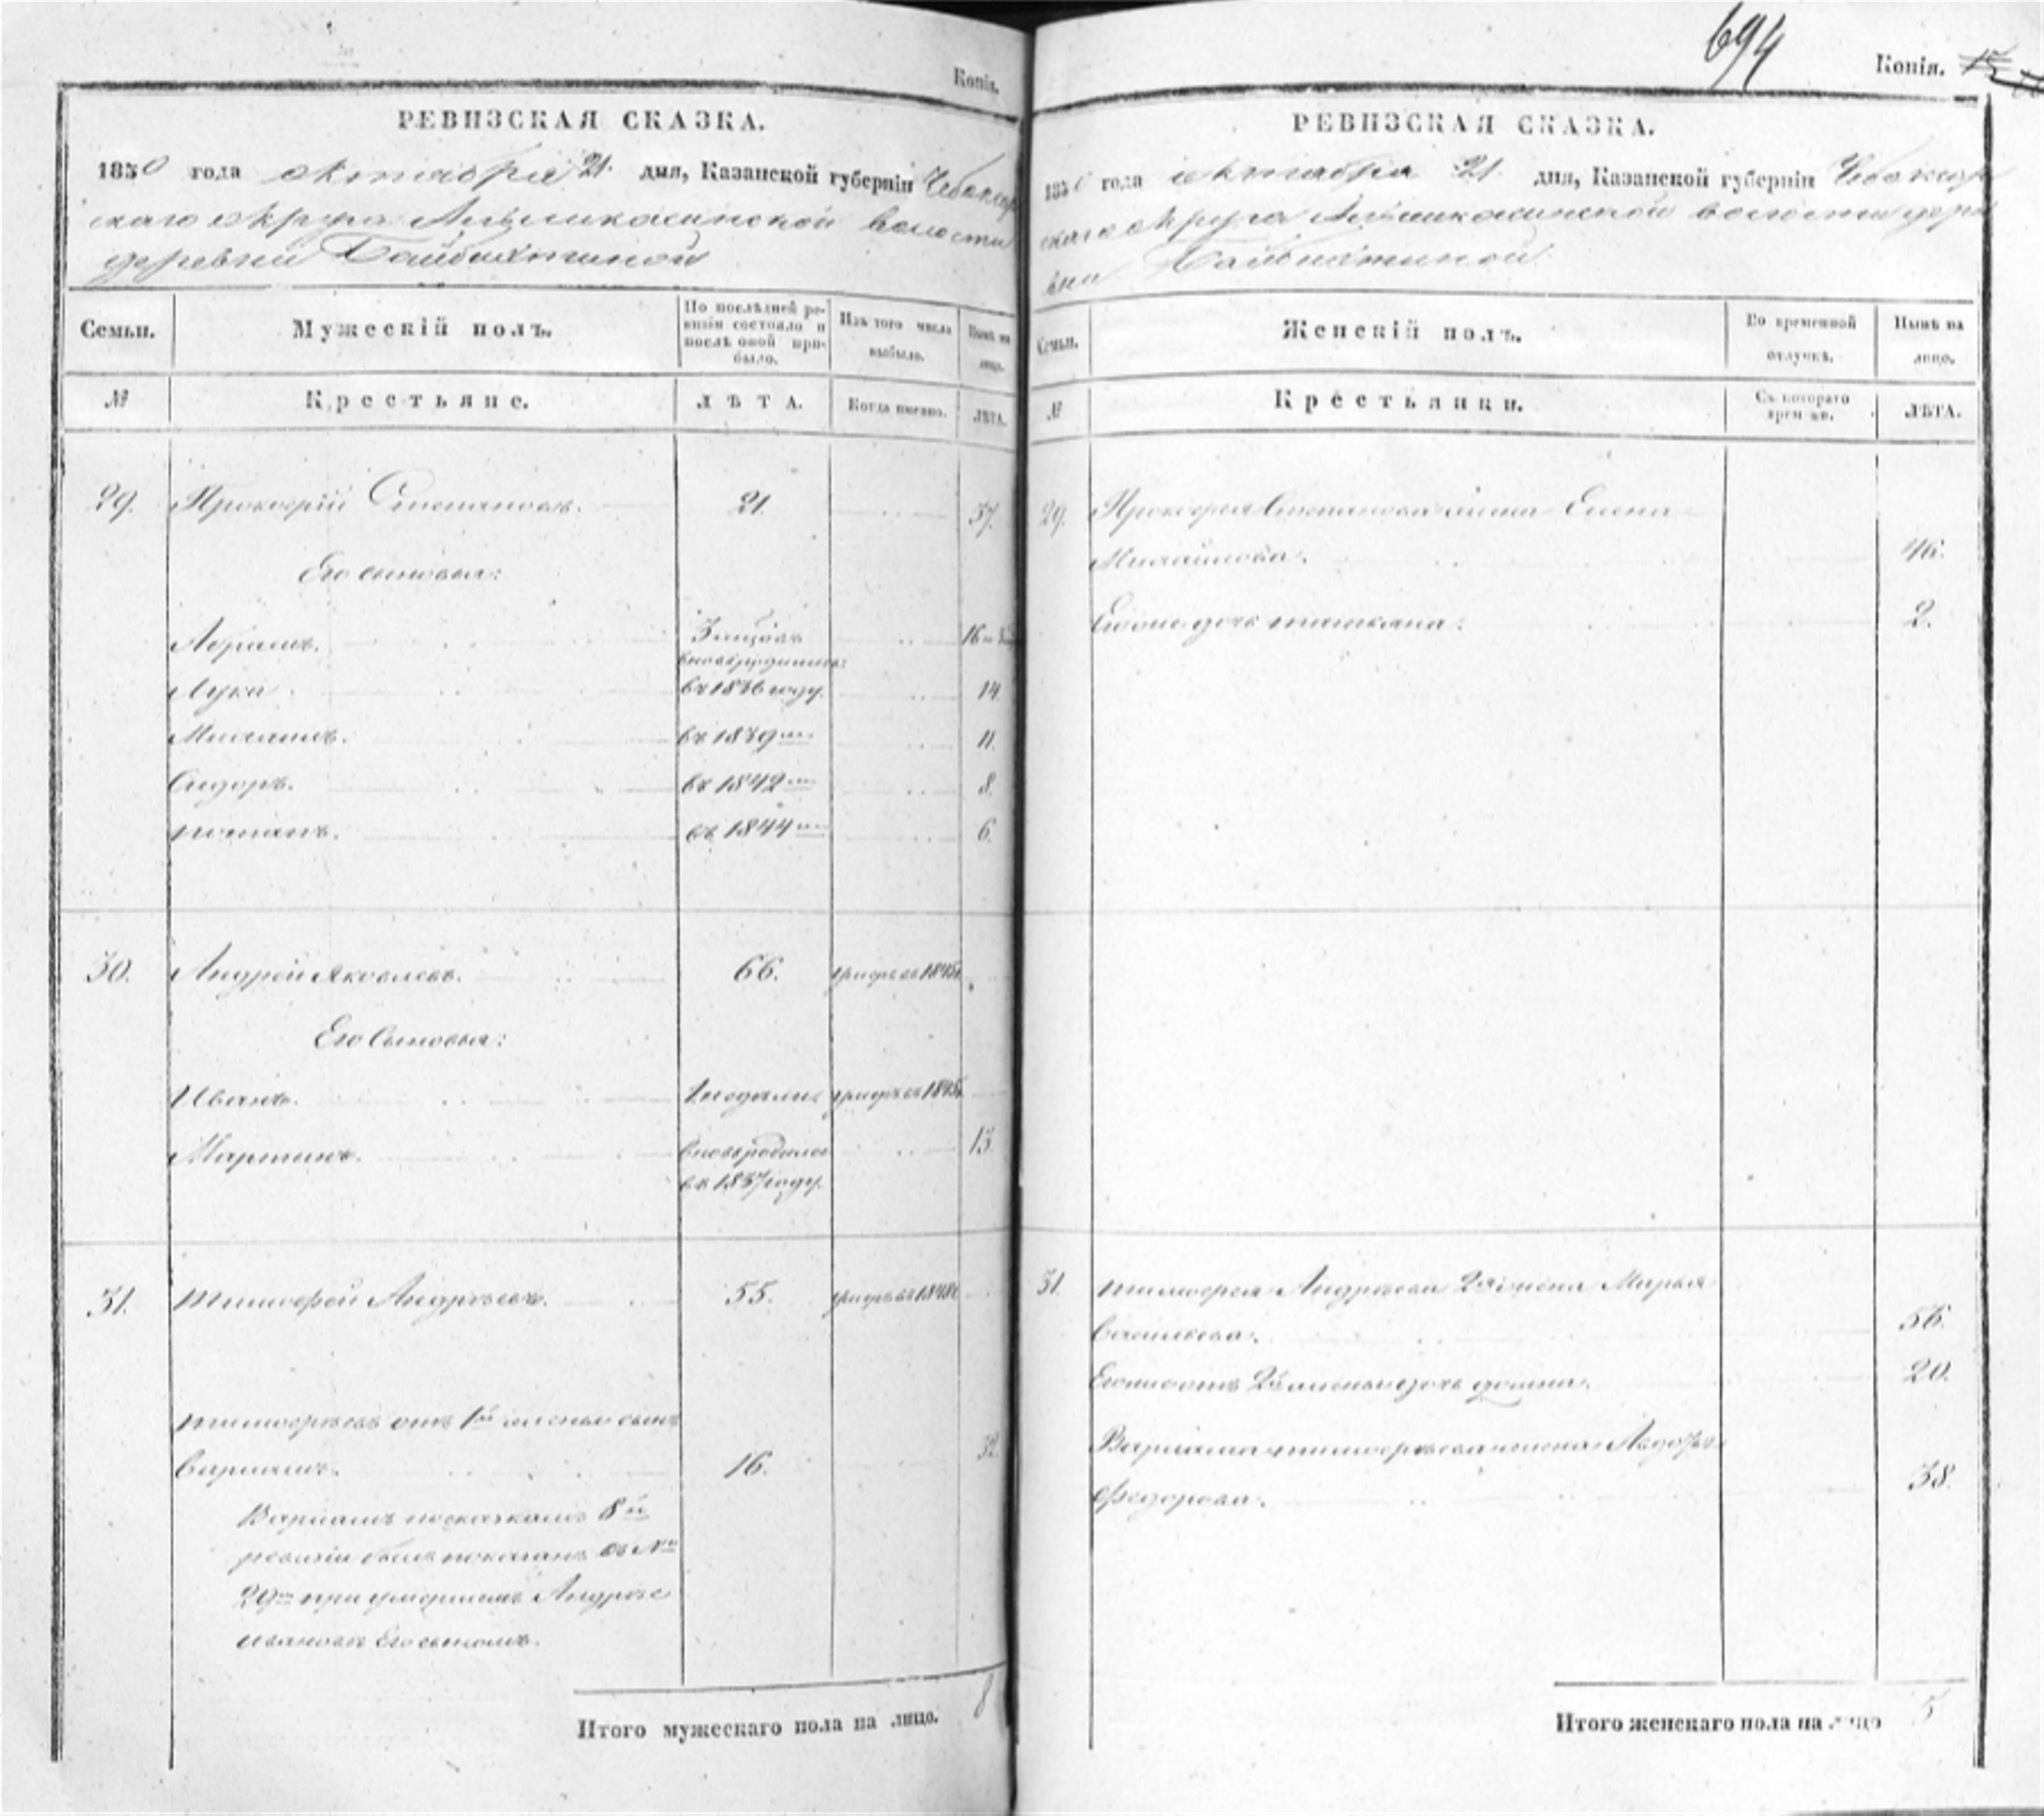 Копія.
РЕВИЗСКАЯ СКАЗКА.
1850 года октября 21 дня, Казанской губерніи Чебоксар
скаго округа волости
деревни Байбахтиной
Семьи.
Мужескій полъ.
По послѣдней ре-
визіи состояло и
послѣ оной при-
было.
Изъ того числа
выбыло.
Нынѣ на
лицо.
№
Крестьяне.
ЛѢТА.
Когда именно.
ЛѢТА.
29. Прокофій Степановъ. 21. 37.
Его сыновья:
Абрамъ. 16
вновьродились:
Лука. въ 1836 году. 14.
Михаилъ. въ 1839 11.
Сидоръ. въ 1842 8.
Потапъ. въ 1844 6.
30. Андрей Яковлевъ. 66.
Его сыновья:
Иванъ.
Мартинъ. вновьродился 13
въ 1837 году.
31. Тимофей Андреевъ. 55.
Тимофеевъ отъ 1й жены сынъ
Варламъ. 16. 32.
Варламъ посказкамъ 8й
ревизіи былъ показанъ въ №
29м при умершемъ Андрее
Ивановѣ Его сыномъ.
Итого мужескаго пола на лицо. 8
694
Копія. 15
РЕВИЗСКАЯ СКАЗКА.
1850 года октября 21 дня, Казанской губерніи Чебоксар
скаго округа волости дере
вни Байбахтиной
Семьи.
Женскій полъ.
Во временной
отлучкѣ.
Нынѣ на
лицо.
№
Крестьянки.
Съ котораго
времени.
ЛѢТА.
29. Прокофья Степанова жена Елена
Михайлова. 46.
Егоже дочь 2.
31. Тимофея Андреева 2я жена Марья
Васильева. 56.
Егоже отъ 2й жены дочь 20.
Варлама Тимофеева жена Авдотья
Федорова. 38.
Итого женскаго пола на лицо 5